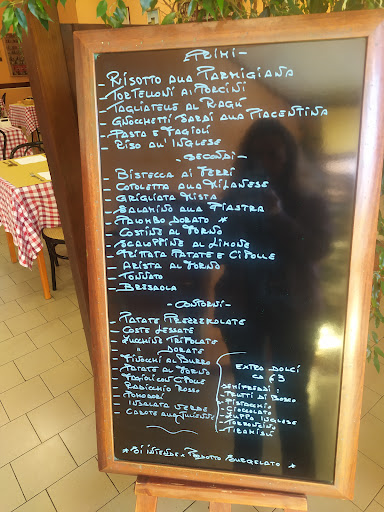 - PRIMI -
- RISOTTO ALLA PARMIGIANA
- TORTELLONI AI PORCINI
- TAGLIATELLE AL RAGÙ
- GNOCCHETTI SARDI ALLA PIACENTINA
- PASTA E FAGIOLI
- RISO ALL'INGLESE
- SECONDI -
- BISTECCA AI FERRI
- COTOLETTA ALLA MILANESE
- GRIGLIATA MISTA
- SALAMINO ALLA PIASTRA
- PALOMBO DORATO *
- COSTINE AL FORNO
- SCALOPPINE AL LIMONE
- FRITTATA PATATE E CIPOLLE
- ARISTA AL FORNO
- TONNATO
- BRESAOLA
- CONTORNI -
- PATATE PREZZEMOLATE
- COSTE LESSATE
- ZUCCHINE TRIFOLATE
- " DORATE
- FINOCCHI AL BURRO
- PATATE AL FORNO
- FAGIOLI CON CIPOLLE
- RADICCHIO ROSSO
- POMODORI
- INSALATA VERDE
- CAROTE ALLA JULIENNE
EXTRA DOLCI
CA €3
- SEMIFREDDI -
- FRUTTI DI BOSCO
- PISTACCHIO
- CIOCCOLATO
- ZUPPA INGLESE
- TORRONCINO
- TIRAMISÙ
* SI INTENDE PRODOTTO SURGELATO *